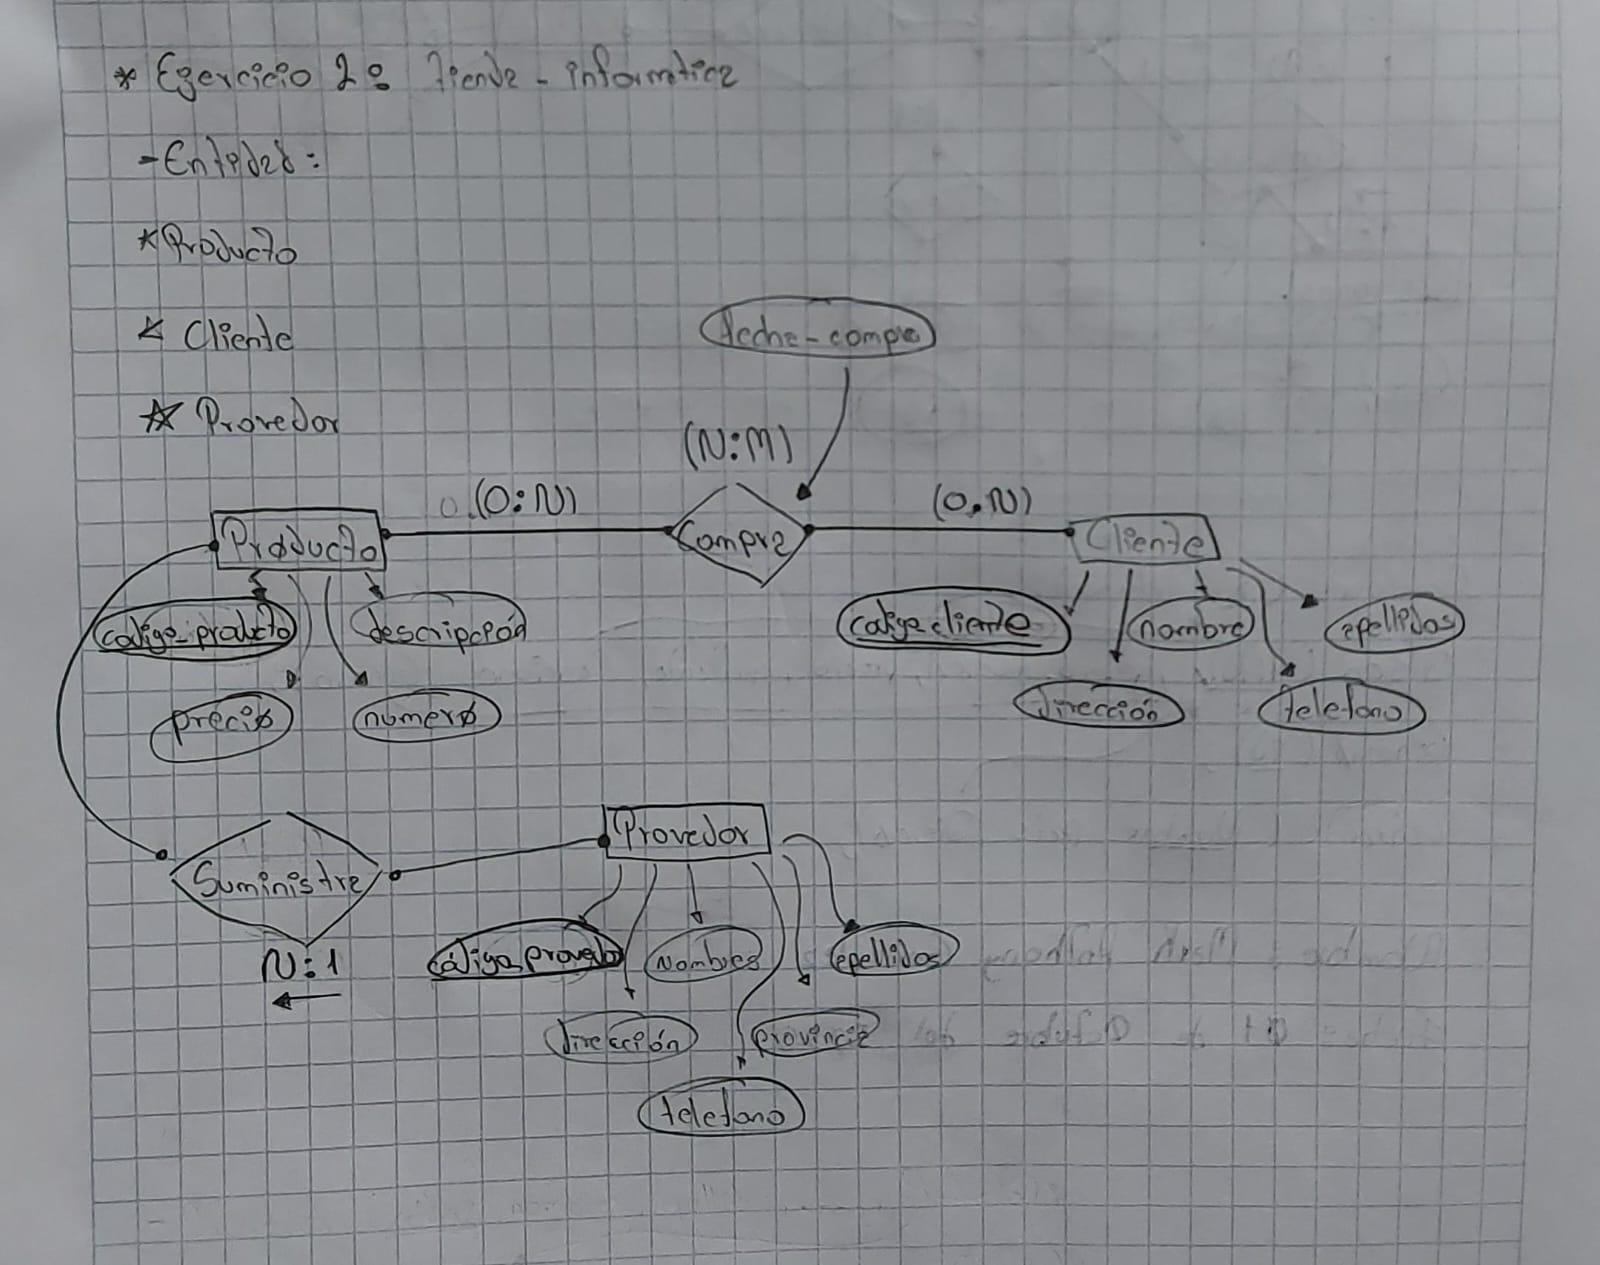 * Egercicio 2: Tienda - informatica
- Entidad:
* Producto
* Cliente
* Provedor
fecha-compra
(N:M)
(0:N)
(0,N)
Producto
Compra
Cliente
codigo_producto
descripción
codigo_cliente
nombre
apellidos
precio
numero
dirección
telefono
Provedor
Suministra
N:1
codigo_provedor
Nombres
apellidos
dirección
provincia
telefono